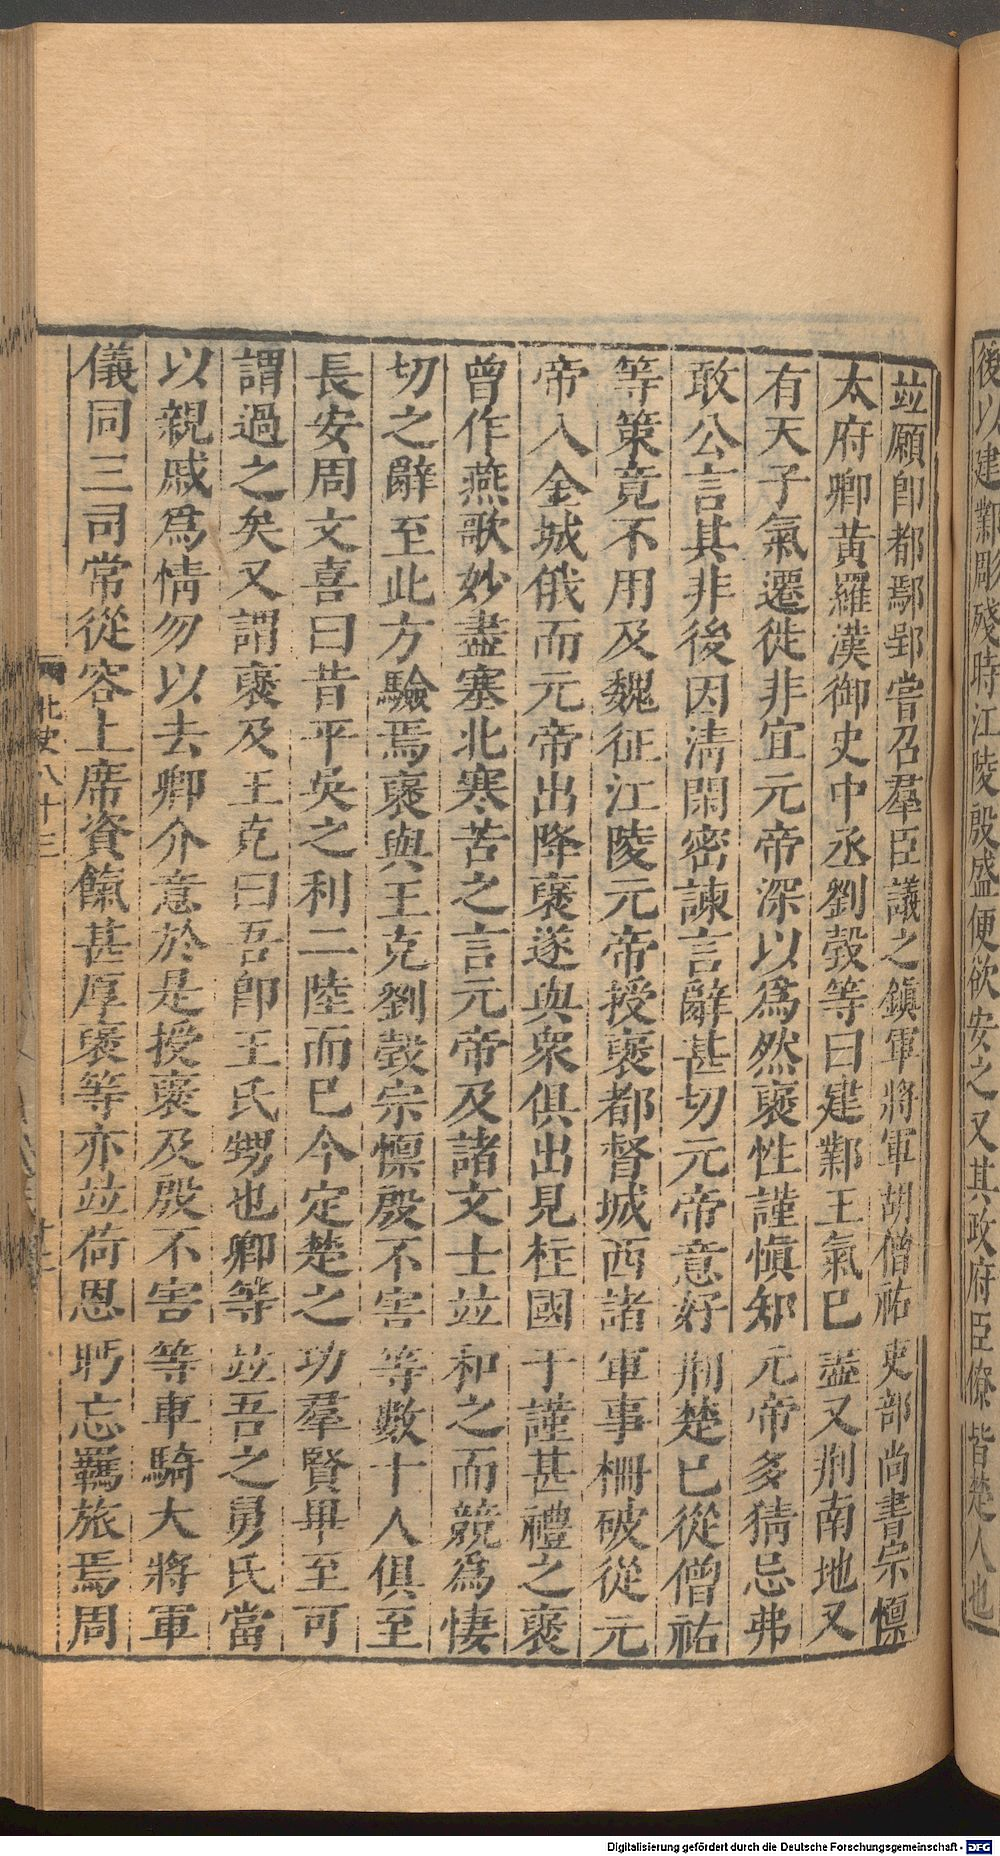 後以建鄴彫殘時江陵殷盛便欲安之又其政府臣僚皆楚人也
竝願卽都鄢郢嘗召羣臣議之鎭軍將軍胡僧祐吏部尚書宗懔
太府卿黃羅漢御史中丞劉瑴等曰建鄴王氣巳盡又荆南地又
有天子氣遷徙非宜元帝深以爲然褒性謹愼知元帝多猜忌弗
敢公言其非後因清閑密諫言辭甚切元帝意好荆楚已從僧祐
等策竟不用及魏征江陵元帝授褒都督城西諸軍事柵破從元
帝入金城俄而元帝出降褒遂與衆俱出見柱國于謹甚禮之褒
曾作燕歌妙盡塞北寒苦之言元帝及諸文士竝和之而競爲悽
切之辭至此方驗焉褒與王克劉瑴宗懔殷不害等數十人俱至
長安周文喜曰昔平吳之利二陸而已今定楚之功羣賢畢至可
謂過之矣又謂褒及王克曰吾卽王氏甥也卿等竝吾之舅氏當
以親戚爲情勿以去卿介意於是授褒及殷不害等車騎大將軍
儀同三司常從容上席資餼甚厚褒等亦竝荷恩眄忘羈旅焉周
北史八十三
Digitalisierung gefördert durch die Deutsche Forschungsgemeinschaft - DFG